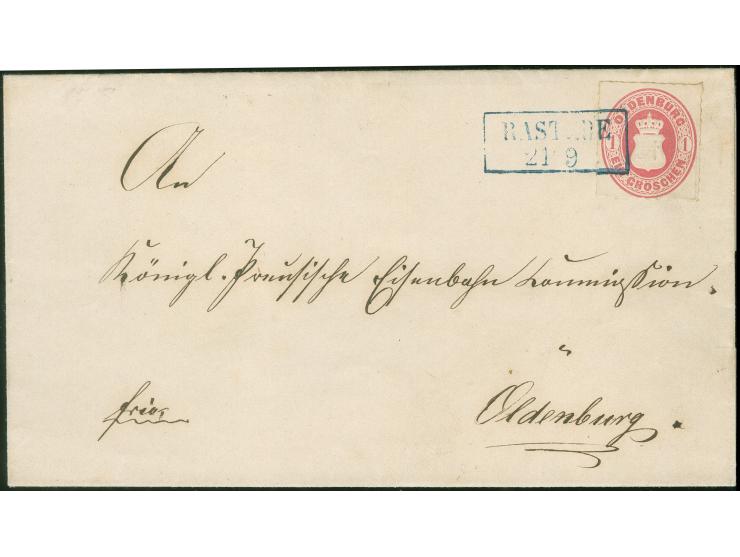 OLDENBURG
1 1
EIN GROSCHEN
RASTEDE
21 9
An
Königl. Preusische Eisenbahn Commission.
Oldenburg.